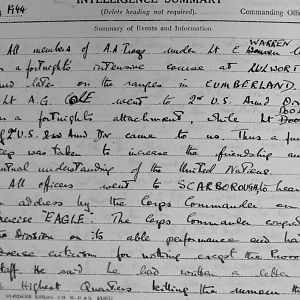 INTELLIGENCE SUMMARY
1944
(Delete heading not required).
Commanding Offic
Summary of Events and Information
WARREN
All members of A.A Troop under Lt E
a fortnight's intensive course at LULWORT
and later on the ranges in CUMBERLAND.
Lt A.G. COLE went to 2nd U.S. Armd
a fortnight's attachment, while Lt
2nd U.S. Armd Div came to us. Thus a fur
step was taken to increase the friendship an
mutual understanding of the United Nations.
All officers went to SCARBOROUGH to hear
an address by the Corps Commander on
Exercise "EAGLE". The Corps Commander congrat
the Division on its able performance and ha
adverse criticism for nothing except the Provo
Staff. He said he had written a letter
Highest Quarters killing the rumour th